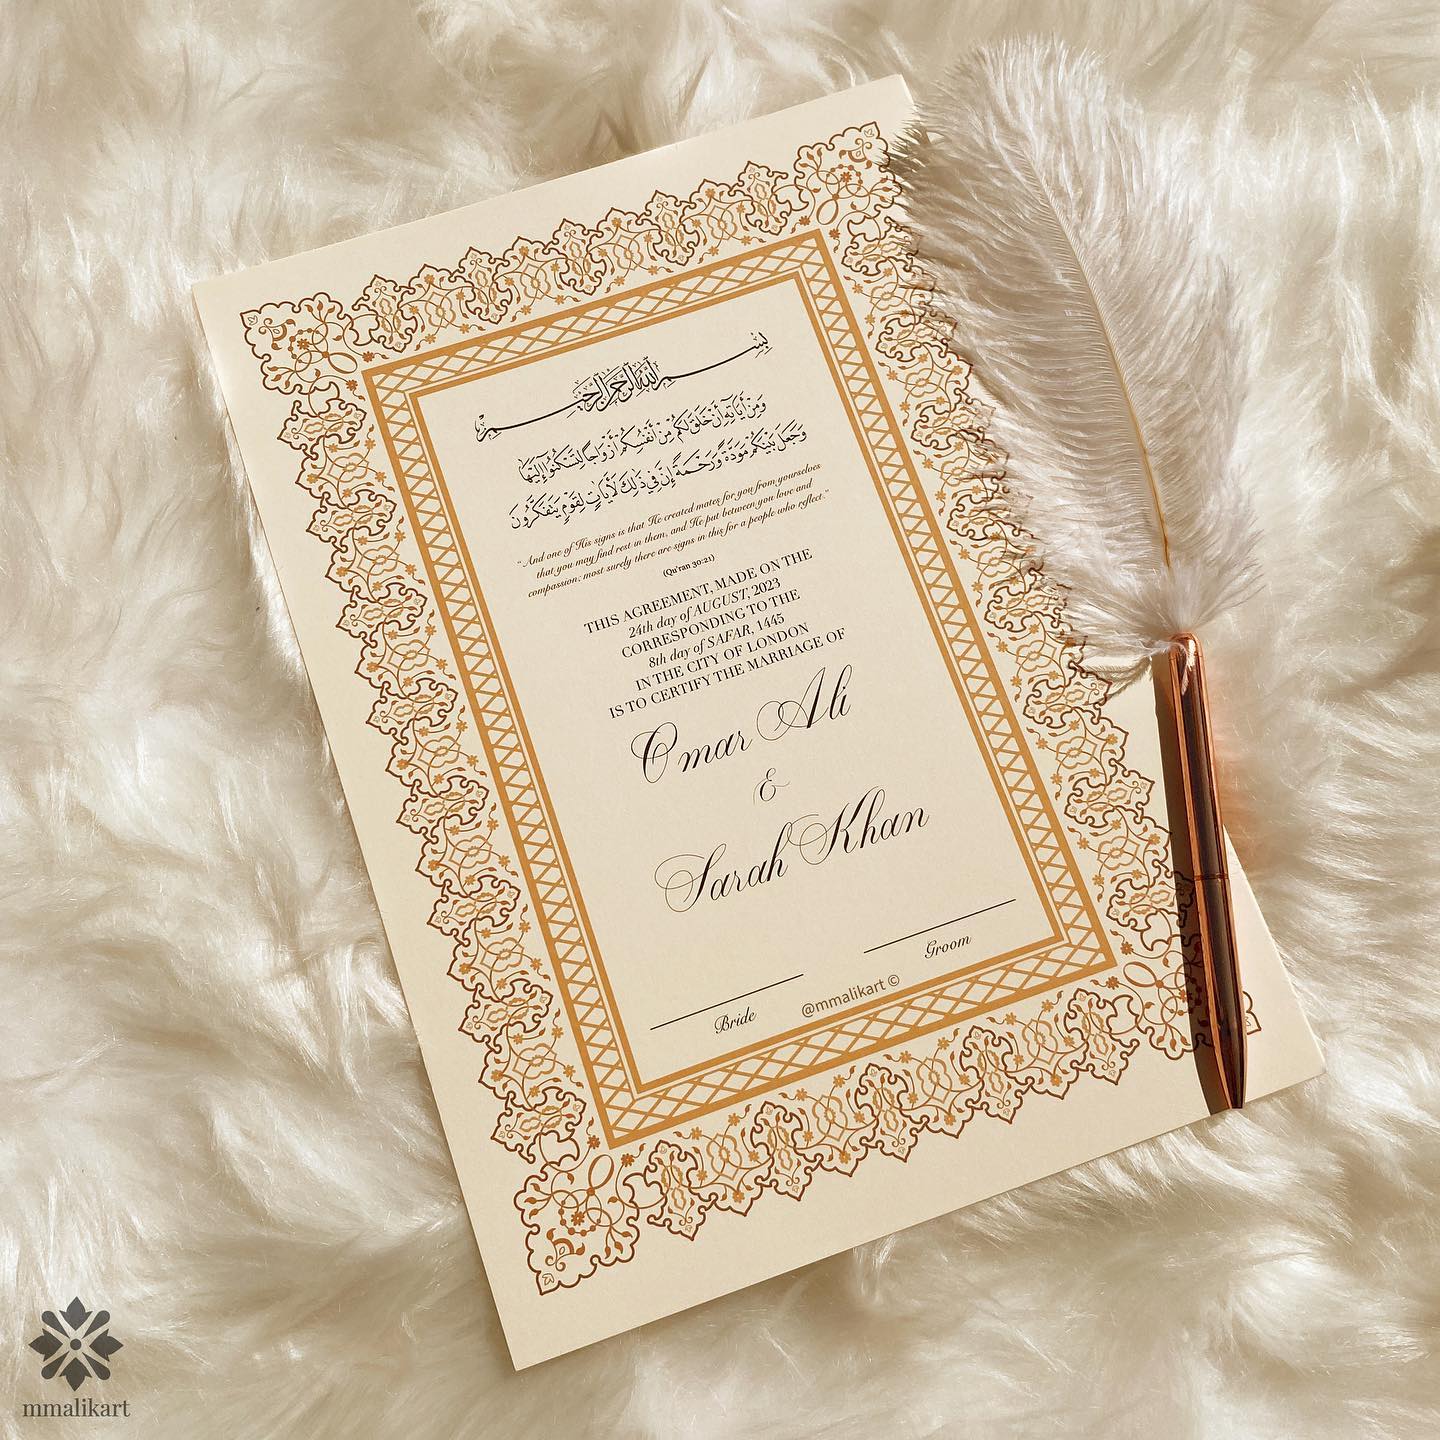 بِسْمِ اللهِ الرَّحْمٰنِ الرَّحِيْمِ
وَمِنْ آيَاتِهِ أَنْ خَلَقَ لَكُمْ مِنْ أَنْفُسِكُمْ أَزْوَاجًا لِتَسْكُنُوا إِلَيْهَا
وَجَعَلَ بَيْنَكُمْ مَوَدَّةً وَرَحْمَةً إِنَّ فِي ذَلِكَ لَآيَاتٍ لِقَوْمٍ يَتَفَكَّرُونَ
"And one of His signs is that He created mates for you from yourselves
that you may find rest in them, and He put between you love and
compassion; most surely there are signs in this for a people who reflect."
(Qu'ran 30:21)
THIS AGREEMENT, MADE ON THE
24th day of AUGUST, 2023
CORRESPONDING TO THE
8th day of SAFAR, 1445
IN THE CITY OF LONDON
IS TO CERTIFY THE MARRIAGE OF
Omar Ali
&
Sarah Khan
Groom
Bride
@mmalikart ©
mmalikart